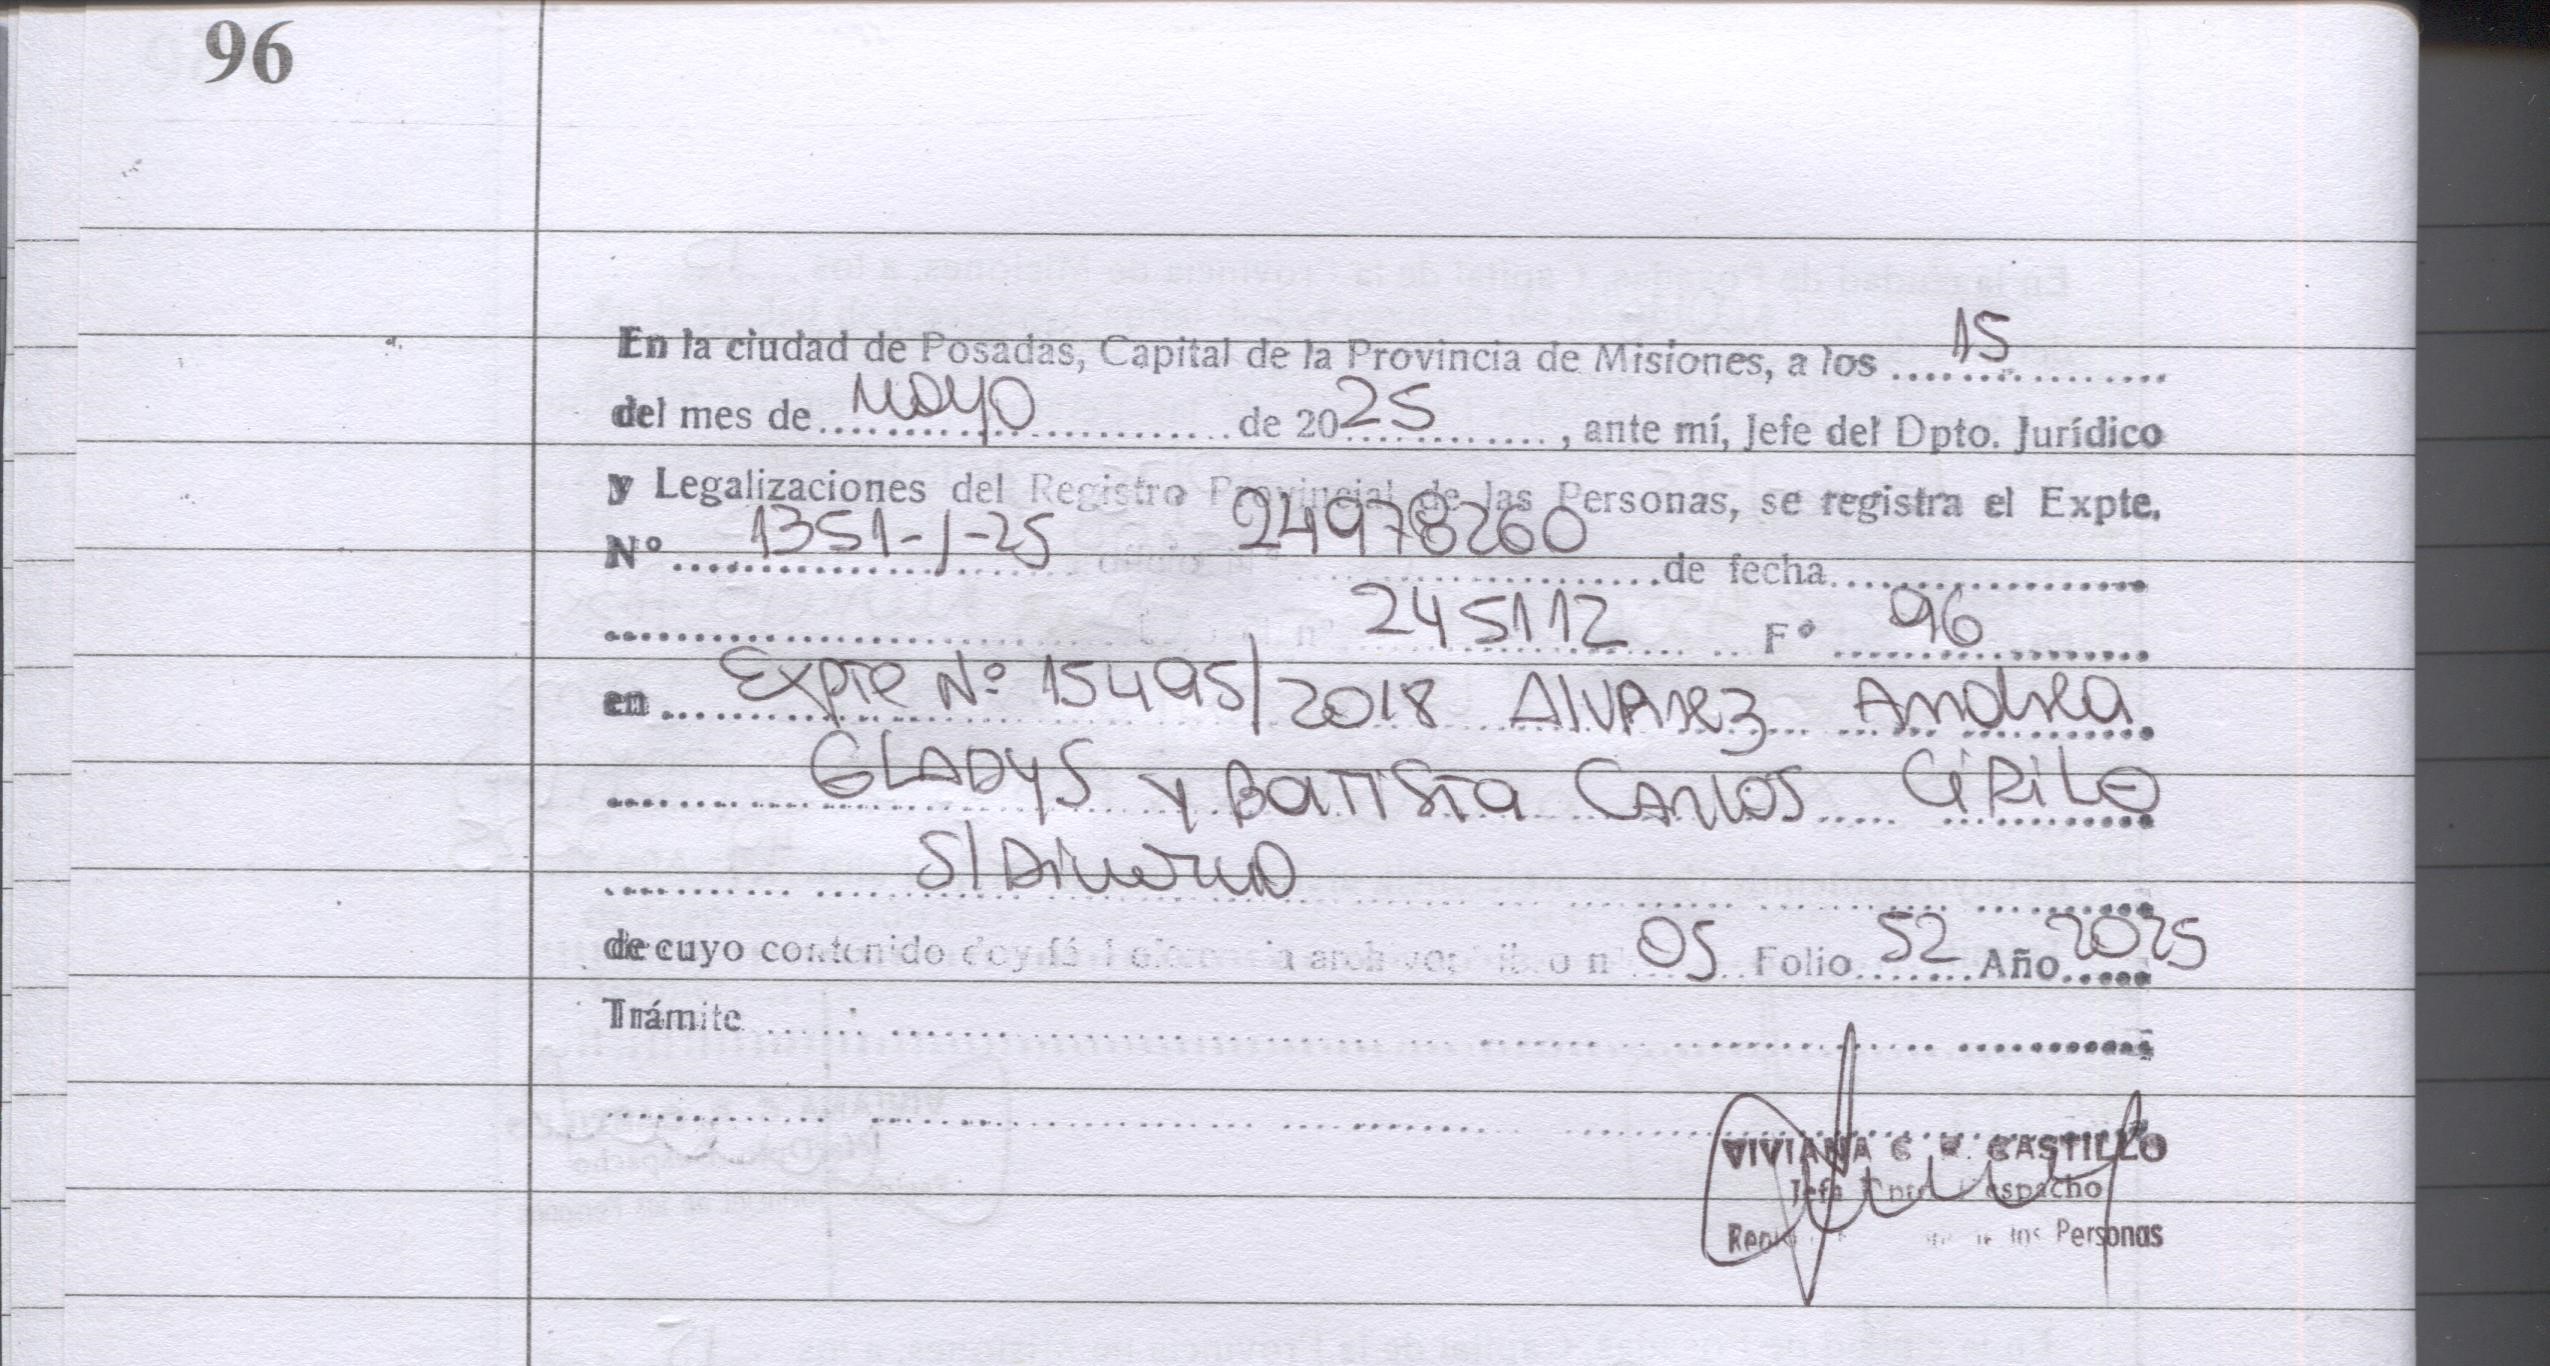 96
En la ciudad de Posadas, Capital de la Provincia de Misiones, a los ....15....
del mes de ....Mayo.... de 2025...., ante mí, Jefe del Dpto. Jurídico
y Legalizaciones del Registro Provincial de las Personas, se registra el Expte.
N° ....1351-J-25.... 24978260 ....de fecha....
.... 245112 .... F° ....96....
en ....Expte Nº 15495/2018 Alvarez Andrea
GLADYS y Battista Carlos CiRiLO
S/Divorcio
de cuyo contenido doy fé archivo n 05 Folio 52 Año 2025
Trámite ....
VIVIANA CASTILLO
Jefa Dpto Despacho
Personas